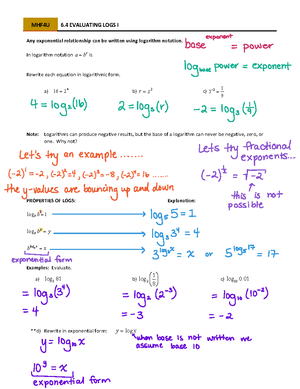 MHF4U 6.4 EVALUATING LOGS I
Any exponential relationship can be written using logarithm notation.
base^exponent = power
In logarithm notation a = b^c is
log_base power = exponent
Rewrite each equation in logarithmic form.
a) 16 = 2^4 b) r = s^2
4 = log₂(16) 2 = log_s(r) -2 = log₃(1/9)
Note: Logarithms can produce negative results, but the base of a logarithm can never be negative, zero, or
one. Why not?
Let's try an example .......
(-2)^1 = -2, (-2)^2 = 4, (-2)^3 = -8, (-2)^4 = 16 ......
the y-values are bouncing up and down
Let's try fractional
exponents...
(-2)^½ = √-2
this is not
possible
PROPERTIES OF LOGS: Explanation:
log₅5 = 1
log₃3^4 = 4
3^log₃x = x or 5^log₅17 = 17
exponential form
Examples: Evaluate.
a) log₃ 81 b) log₂(1/8) c) log₁₀ 0.01
= log₃(3^4) = log₂(2^-3) = log₁₀(10^-2)
= 4 = -3 = -2
**d) Rewrite in exponential form: y = log x
y = log₁₀x
*when base is not written we
assume base 10
10^y = x
exponential form